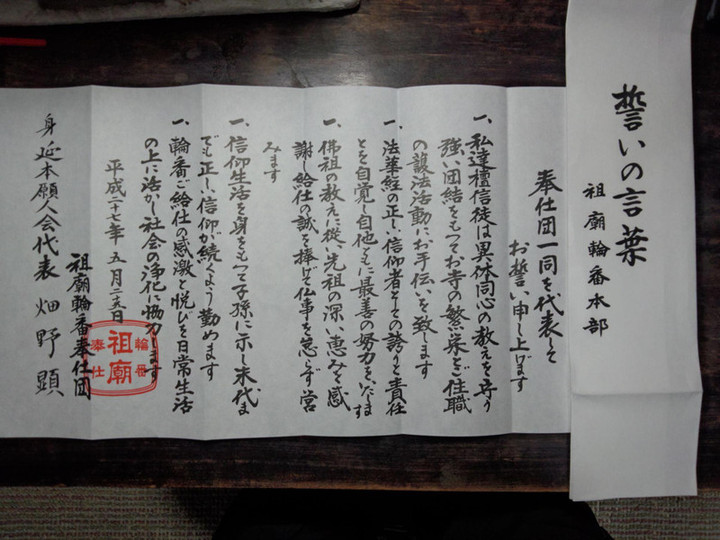 誓いの言葉
祖廟輪番本部
奉仕団一同を代表して
お誓い申し上げます
一、私達檀信徒は異体同心の教えを守り
強い団結をもってお寺の繁栄をご住職
の護法活動にお手伝いを致します
一、法華経の正しい信仰者としての誇りと責任
とを自覚し自他ともに最善の努力をいたします
一、佛祖の教えに従い先祖の深い恵みを感
謝し給仕の誠を捧げて仏事を怠らず営
みます
一、信仰生活を身をもって子孫に示し末代ま
でも正しい信仰が続くよう勤めます
一、輪番ご給仕の感激と悦びを日常生活
の上に活かし社会の浄化に協力します
平成二十七年 五月二十五日
祖廟輪番奉仕団
身延本願人会代表 畑野顕
輪番
祖廟
奉仕